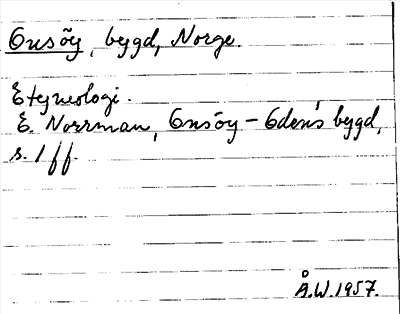 Onsöy, bygd, Norge.
Etymologi.
E. Norrman, Onsöy - Odens bygd,
s. 1 ff.
Å.W. 1957.